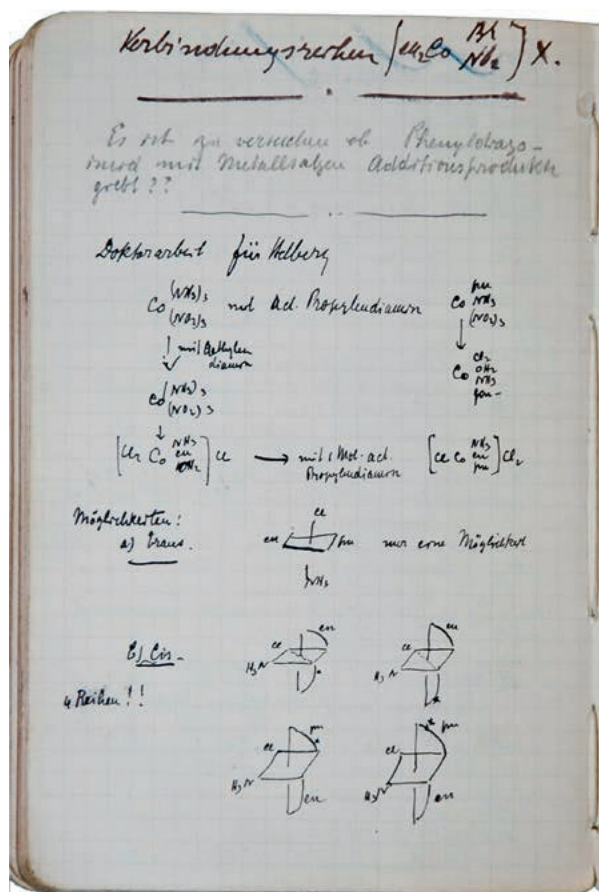 Verbindungsreihen [en₂Co Br NO₂] X.
Es ist zu versuchen ob Phenyldiazo-
imid mit Metallsalzen Additionsprodukte
giebt??
Doktorarbeit für
Co (NH₃)₃ (NO₂)₃ mit act. Propylendiamin Co pn NH₃ (NO₂)₃
↓ mit Aethylen
diamin
Co (NH₃)₃ (NO₂)₃
Co Cl₂ OH₂ NH₃ pn
[Cl₂ Co NH₃ en OH₂] Cl → mit 1 Mol. act.
Propylendiamin [Cl Co NH₃ en pn] Cl₂
Möglichkeiten:
a) trans.
cl
en pn nur eine Möglichkeit
NH₃
b) Cis-
cl en cl en
H₃N H₃N
4 Reihen!!
cl pn cl pn
H₃N en H₃N en